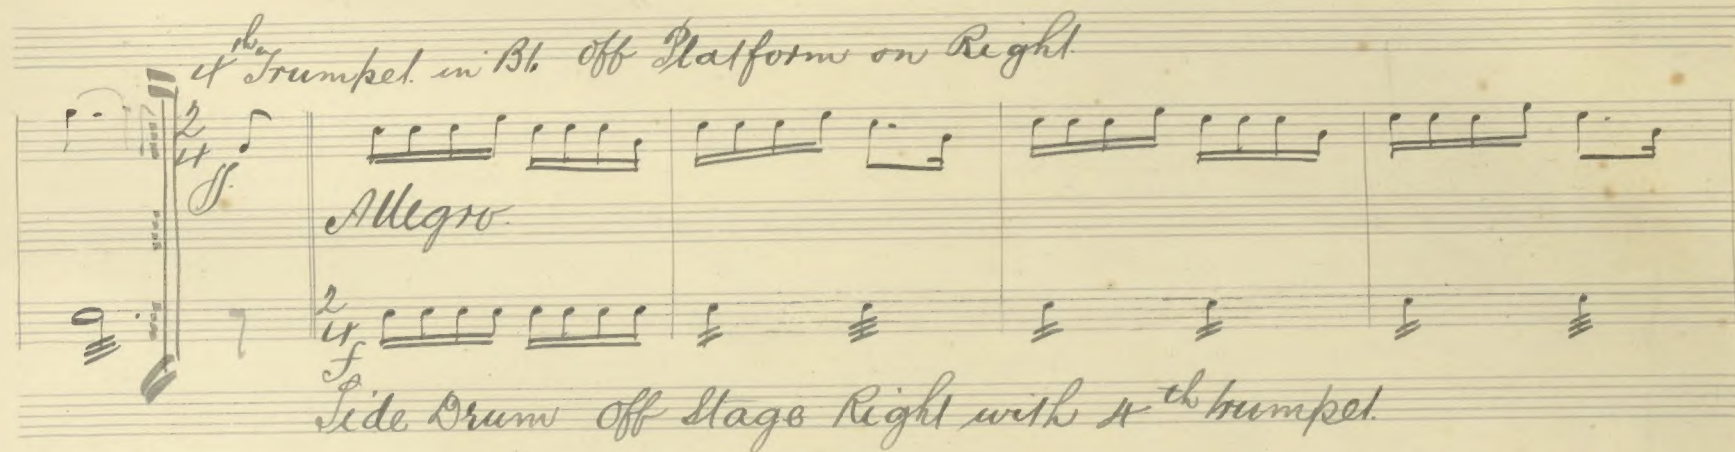 4th Trumpet in B♭. Off Platform on Right
2
4
ff.
Allegro.
2
4
f
Side Drum Off Stage Right with 4th trumpet.